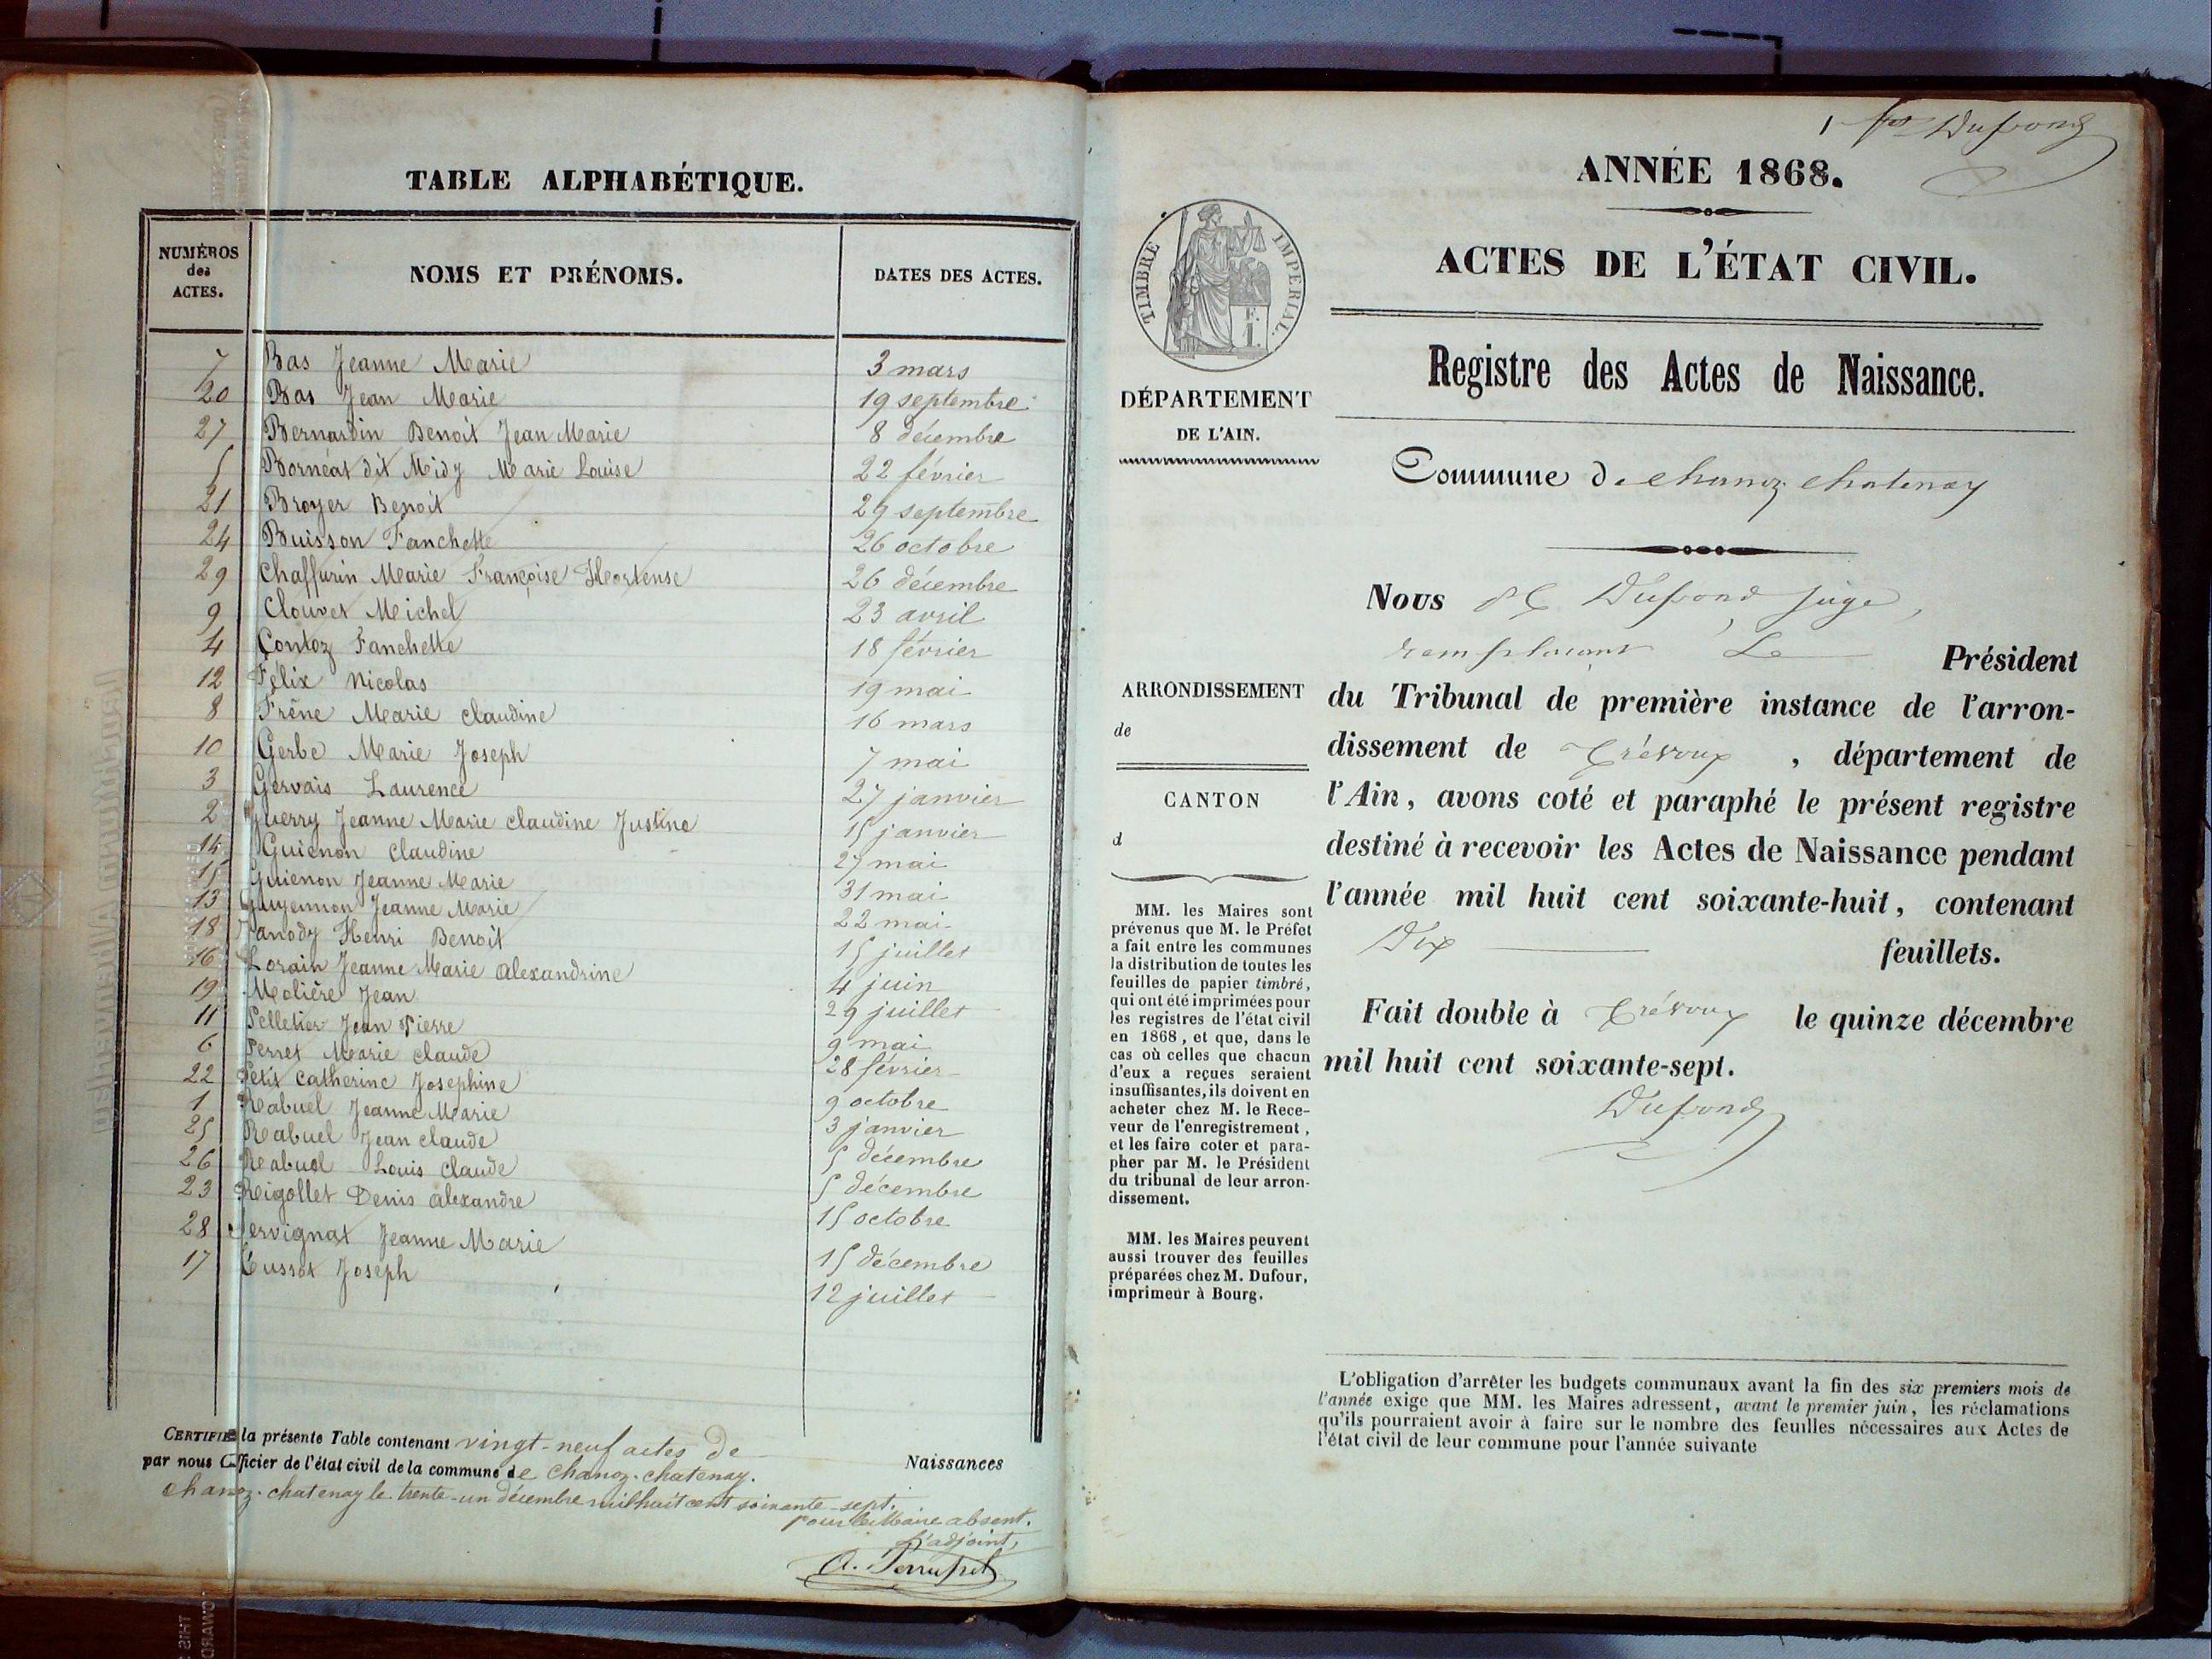 TABLE ALPHABÉTIQUE.
NUMÉROS des ACTES. NOMS ET PRÉNOMS. DATES DES ACTES.
7 Bas Jeanne Marie 3 mars
20 Bas Jean Marie 19 septembre
27 Bernardin Benoit Jean Marie 8 décembre
5 Bornéat dit Midy Marie Louise 22 février
21 Broyer Benoit 29 septembre
24 Buisson Fanchette 26 octobre
29 Chaffurin Marie Françoise Hortense 26 décembre
9 Clouvet Michel 23 avril
4 Contoz Fanchette 18 février
12 Félix Nicolas 19 mai
8 Frêne Marie Claudine 16 mars
10 Gerbe Marie Joseph 7 mai
3 Gervais Laurence 27 janvier
2 Guerry Jeanne Marie Claudine Justine 15 janvier
14 Guienon Claudine 27 mai
15 Guienon Jeanne Marie 31 mai
13 Guyennon Jeanne Marie 22 mai
18 Janody Henri Benoit 15 juillet
16 Lorain Jeanne Marie Alexandrine 4 juin
19 Molière Jean 29 juillet
11 Pelletier Jean Pierre 9 mai
6 Perret Marie Claude 28 février
22 Petit Catherine Josephine 9 octobre
1 Rabuel Jeanne Marie 3 janvier
25 Rabuel Jean Claude 5 décembre
26 Rabuel Louis Claude 5 décembre
23 Rigollet Denis Alexandre 15 octobre
28 Servignat Jeanne Marie 15 décembre
17 Tussot Joseph 12 juillet
CERTIFIÉ la présente Table contenant vingt-neuf actes de Naissances
par nous Officier de l'état civil de la commune de Chanoz-chatenay.
Chanoz-chatenay le trente-un décembre mil huit cent soixante-sept.
pour le Maire absent.
L'adjoint,
1 Dupond
ANNÉE 1868.
ACTES DE L'ÉTAT CIVIL.
TIMBRE IMPERIAL.
Registre des Actes de Naissance.
DÉPARTEMENT
DE L'AIN.
Commune de Chanoz Chatenay
Nous Dupond juge,
remplaçant Le Président
ARRONDISSEMENT
de
du Tribunal de première instance de l'arron-
dissement de Trévoux, département de
CANTON
d
l'Ain, avons coté et paraphé le présent registre
destiné à recevoir les Actes de Naissance pendant
l'année mil huit cent soixante-huit, contenant
Dix feuillets.
Fait double à Trévoux le quinze décembre
mil huit cent soixante-sept.
Dupond
MM. les Maires sont
prévenus que M. le Préfet
a fait entre les communes
la distribution de toutes les
feuilles de papier timbré,
qui ont été imprimées pour
les registres de l'état civil
en 1868, et que, dans le
cas où celles que chacun
d'eux a reçues seraient
insuffisantes, ils doivent en
acheter chez M. le Rece-
veur de l'enregistrement,
et les faire coter et para-
pher par M. le Président
du tribunal de leur arron-
dissement.
MM. les Maires peuvent
aussi trouver des feuilles
préparées chez M. Dufour,
imprimeur à Bourg.
L'obligation d'arrêter les budgets communaux avant la fin des six premiers mois de
l'année exige que MM. les Maires adressent, avant le premier juin, les réclamations
qu'ils pourraient avoir à faire sur le nombre des feuilles nécessaires aux Actes de
l'état civil de leur commune pour l'année suivante